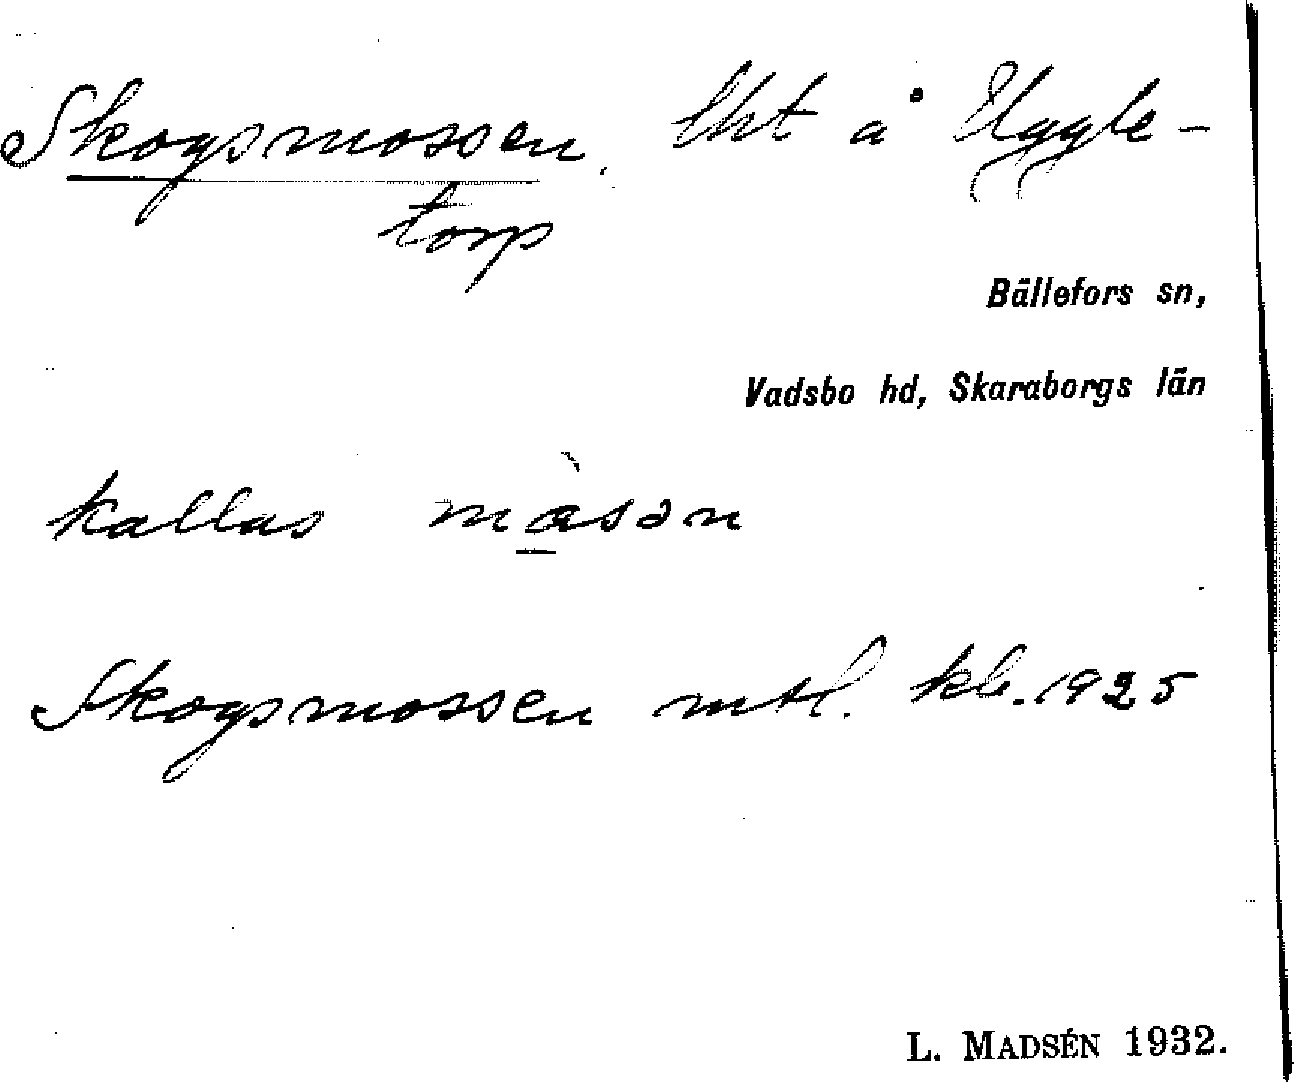 Skogsmossen. lht å Uggle-
torp
Bällefors sn,
Vadsbo hd, Skaraborgs län
kallas mɑ̀sən
Skogsmossen mtl. kb. 1925
L. MADSÉN 1932.